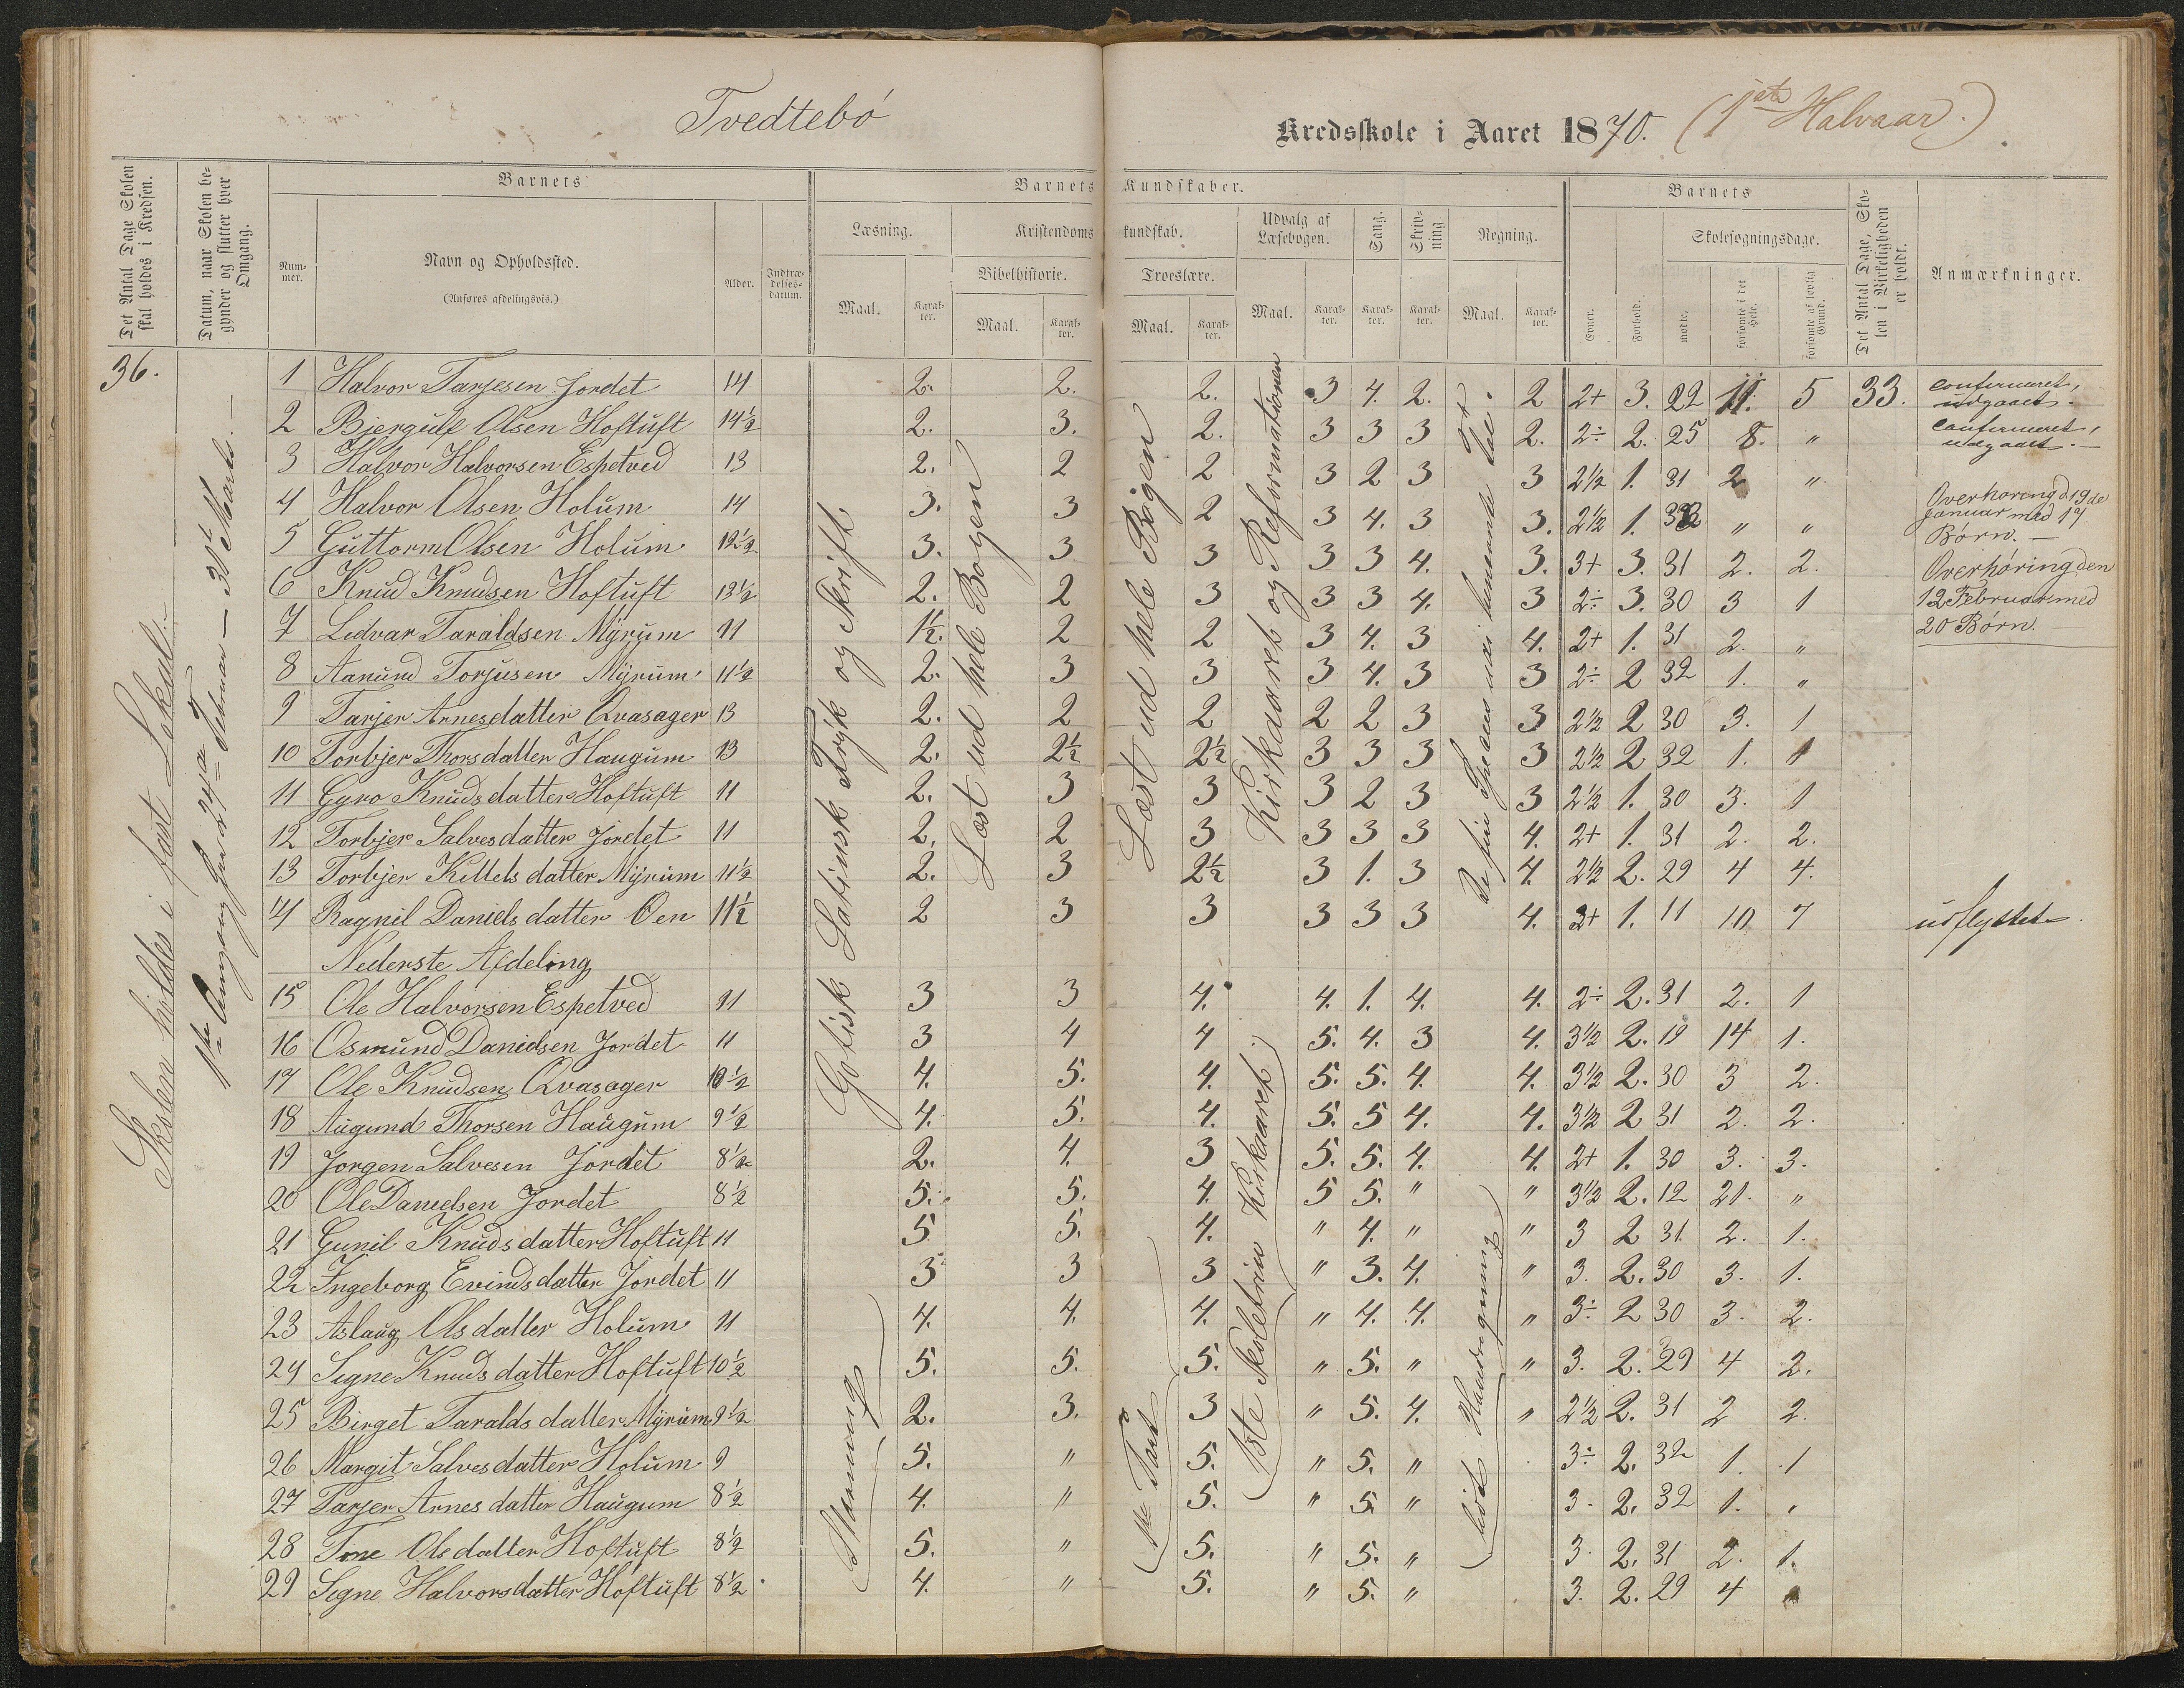 Tvedtebö
Kredsskole i Aaret 1870. (1ste Halvaar.)
Det Antal Dage Skolen skal holdes i Kredsen.
Datum, naar Skolen begynder og slutter hver Omgang.
Barnets
Barnets Kundskaber.
Barnets
Det Antal Dage, Skolen i Virkeligheden er holdt.
Anmærkninger.
Nummer.
Navn og Opholdssted.
(Anføres afdelingsvis.)
Alder.
Indtrædelsesdatum.
Læsning.
Kristendomskundskab.
Udvalg af Læsebogen.
Sang.
Skrivning
Regning.
Evner.
Forhold.
Skolesøgningsdage.
Bibelhistorie.
Troeslære.
Maal.
Karakter.
Maal.
Karakter.
Maal.
Karakter.
Maal.
Karakter.
Karakter.
Karakter.
Maal.
Karakter.
mødte.
forsømte i det Hele.
forsømte af lovlig Grund.
36.
Skolen holdes i fast Lokal.
1ste Omgang fra 24de Februar — 31te Marts. —
Gotisk Latinsk Tryk og Skrift.
Stavning
Læst ud hele Bogen
Læst ud hele Bogen
1ste Part
Kirkaaret og Reformationen
1ste Skoletrin Kirkeaaret.
De fire Species med
lidt Hovedregning
1 Halvor Tarjesen Jordet 14 2. 2. 2. 3 4. 2. 2 2+ 3. 22 11. 5 33. confirmeret, udgaaet.
2 Bjergulf Olsen Hoftuft 14½ 2. 3. 2. 3 3 3 2. 2÷ 2. 25 8. " confirmeret, udgaaet. —
3 Halvor Halvorsen Espetved 13 2. 2 2 3 2 3 3 2½ 1. 31 2 "
4 Halvor Olsen Holum 14 3. 3 2 3 4. 3 3. 2½ 1. 33 " "
Overhøring d 19de Januar med 17 Børn. —
5 Guttorm Olsen Holum 12½ 3. 3 3 3 3 4. 3. 3+ 3. 31 2. 2.
Overhøring den 12 Februar med 20 Børn.
6 Knud Knudsen Hoftuft 13½ 2. 2 3 3 3 4. 3 2÷ 3. 30 3 1
7 Lidvar Taraldsen Myrum 11 1½. 2 2 3 4. 3 4. 2+ 1. 31 2. "
8 Aanund Torjusen Myrum 11½ 2. 3 3 3 4. 3 3 2÷ 2 32 1. "
9 Tarjer Arnesdatter Qvasager 13 2. 2 2 2 2 3 3 2½ 2 30 3. 1
10 Torbjer Thorsdatter Haugum 13 2. 2½ 2½ 3 3 3 3 2½ 2 32 1. 1
11 Gyro Knudsdatter Hoftuft 11 2. 3 3 3 2 3 3 2½ 1. 30 3. 1
12 Torbjer Salvesdatter Jordet 11 2. 2 3 3 3 3 4. 2+ 1. 31 2. 2.
13 Torbjer Kittelsdatter Myrum 11½ 2. 3 2½ 3 1. 3 4. 2½ 2. 29 4 4.
14 Ragnil Danielsdatter Oen 11½ 2 3 3 3 3 3 4. 2+ 1. 11 10 7 udflyttet.
Nederste Afdeling
15 Ole Halvorsen Espetved 11 3 3 4. 4. 1. 4. 4. 2÷ 2. 31 2. 1
16 Osmund Danielsen Jordet 11 3 4 4 5. 4. 3 4. 3½ 2. 19 14 1.
17 Ole Knudsen Qvasager 10½ 4. 5. 4. 5. 5. 4. 4. 3½ 2. 30 3 2.
18 Augund Thorsen Haugum 9½ 4. 5. 4. 5. 5 4. 4. 3½ 2 31 2. 2.
19 Jorgen Salvesen Jordet 8½ 2. 4. 3 5. 5. 4. 4. 2+ 1. 30 3. 3.
20 Ole Danielsen Jordet 8½ 5. 5. 4. 5 5. " " 3½ 2. 12 21. "
21 Gunil Knudsdatter Hoftuft 11 5 5. 4. " 4. " " 3 2 31. 2. 1.
22 Ingeborg Evindsdatter Jordet 11 3 3 3 " 3. 4. " 3. 2. 30 3. 1.
23 Aslaug Olsdatter Holum 11 4. 4. 4. " 4. 4. " 3÷ 2 30 3. 2.
24 Signe Knudsdatter Hoftuft 10½ 5. 5. 5. " 5. " " 3. 2. 29 4 2.
25 Birget Taraldsdatter Myrum 9½ 2. 3. 3 " 5. 4. " 2½ 2. 31 2 2.
26 Margit Salvesdatter Holum 9 5. " 5. " 5. " 3÷ 2. 32 1. 1
27 Tarjer Arnesdatter Haugum 8½ 4. " 5. " 5. " 3. 2. 32 1. "
28 Tone Olsdatter Hoftuft 8½ 5. " 5. " 5. " 3. 2. 31 2. 1.
29 Signe Halvorsdatter Hoftuft 8½ 4. " 5. " 5. " 3. 2. 29 4